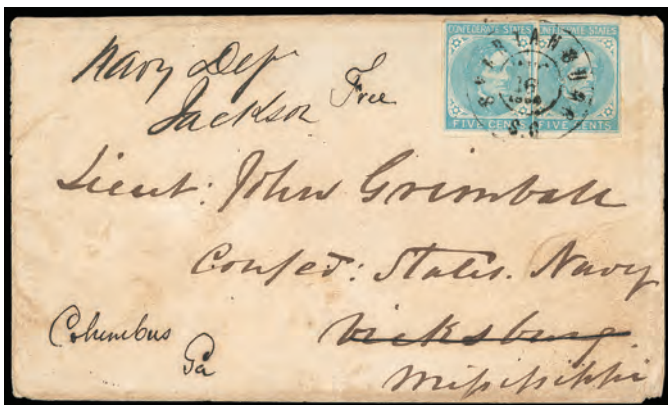 CONFEDERATE STATES CONFEDERATE STATES
SPARTANBURG
16
S.C.
FIVE CENTS FIVE CENTS
Navy Dep
Jackson Free
Lieut: John Grimball
Confed: States. Navy
Vicksburg
Mississippi
Columbus
Ga